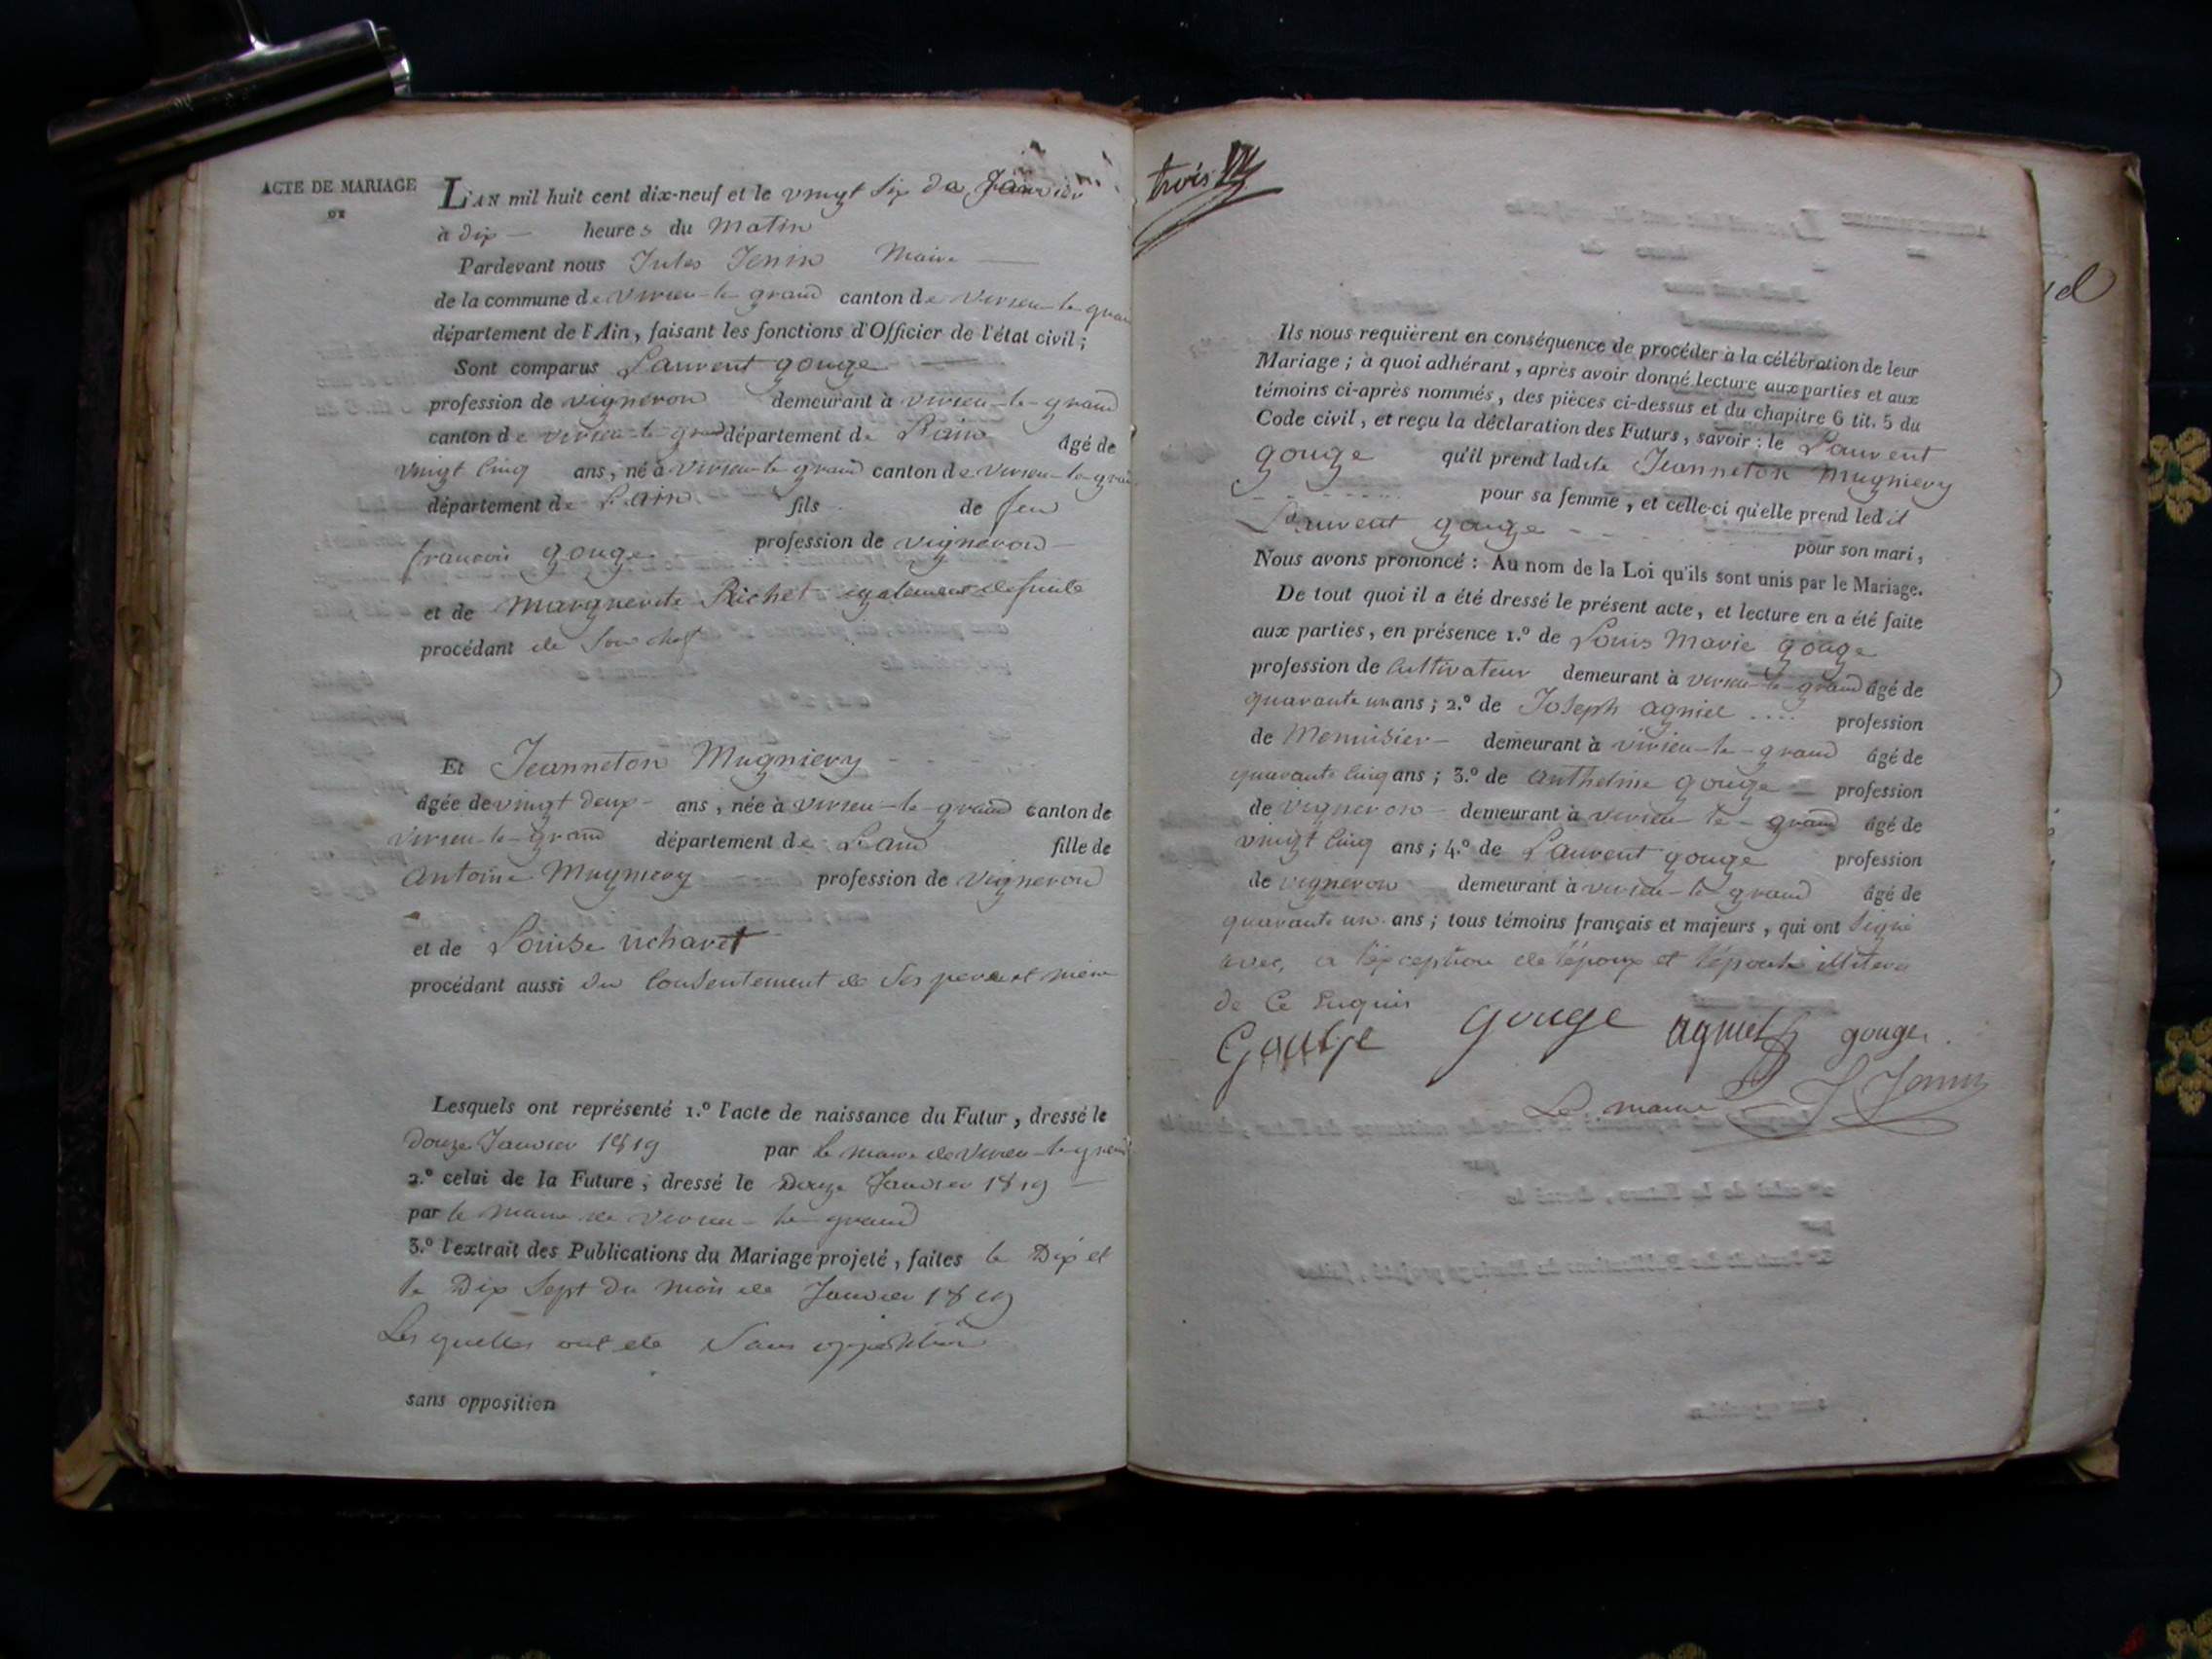 ACTE DE MARIAGE
DE
L'AN mil huit cent dix-neuf et le vingt six du Janvier
à dix — heures du matin
Pardevant nous Jules Jenin Maire —
de la commune de virieu-le-grand canton de virieu-le-gran
département de l'Ain, faisant les fonctions d'Officier de l'état civil ;
Sont comparus Laurent gouge
profession de vigneron demeurant à virieu-le-grand
canton de virieu-le-grand département de L'ain âgé de
vingt cinq ans, né à virieu-le grand canton de virieu-le-gran
département de L'ain fils de feu
francois gouge — profession de vigneron —
et de Marguerite Richet egalement defunte
procédant de son chef
Et Jeanneton Mugniery - - -
âgée de vingt deux - ans, née à virieu-le-grand canton de
virieu-le-grand département de L'ain fille de
antoine Mugniery profession de vigneron
et de Louise uchavet
procédant aussi du consentement de ses pere et mère
Lesquels ont représenté 1.º l'acte de naissance du Futur, dressé le
Douze Janvier 1819 par le maire de virieu-le-grand
2.º celui de la Future, dressé le Douze Janvier 1819 —
par le maire de virieu-le-grand
3.º l'extrait des Publications du Mariage projeté, faites le Dix et
le Dix Sept du mois de Janvier 1819
Les quelles ont ete Sans opposition
sans opposition
trois
Ils nous requièrent en conséquence de procéder à la célébration de leur
Mariage ; à quoi adhérant, après avoir donné lecture aux parties et aux
témoins ci-après nommés, des pièces ci-dessus et du chapitre 6 tit. 5 du
Code civil, et reçu la déclaration des Futurs, savoir : le Laurent
gouge qu'il prend ladite Jeanneton Mugniery
pour sa femme, et celle-ci qu'elle prend ledit
Laurent gouge - - - pour son mari,
Nous avons prononcé : Au nom de la Loi qu'ils sont unis par le Mariage.
De tout quoi il a été dressé le présent acte, et lecture en a été faite
aux parties, en présence 1.º de Louis Marie gouge
profession de Cultivateur demeurant à virieu-le-grand âgé de
quarante un ans ; 2.º de Joseph agniel .... profession
de Menuisier — demeurant à virieu-le-grand âgé de
quarante cinq ans ; 3.º de anthelme gouge — profession
de vigneron — demeurant à virieu-le-grand âgé de
vingt cinq ans ; 4.º de Laurent gouge profession
de vigneron demeurant à virieu-le grand âgé de
quarante un ans ; tous témoins français et majeurs, qui ont signé
avec, a l'exception de l'époux et l'épouse illiteré
de ce enquis
Gouge gouge agniel gouge
Le maire J Jenin